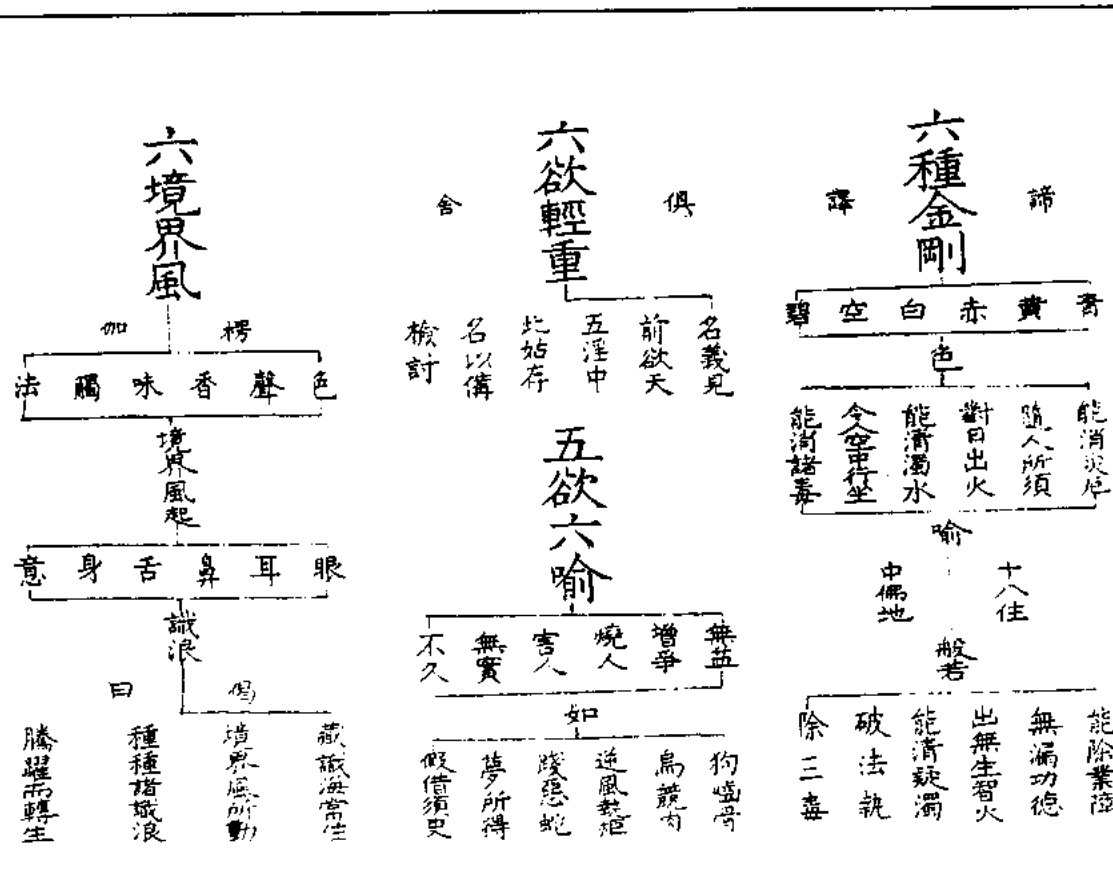 六種金剛
諦譯
青黃赤白空碧
色
能消災厄
隨人所須
對日出火
能清濁水
令空中行坐
能消諸毒
喻
十八住
中偈地
般若
能除業障
無漏功德
出無生智火
能清疑濁
破法執
除三毒
六欲輕重
俱舍
名義見
前欲天
五婬中
此姑存
名以俻
檢討
五欲六喻
無益
增爭
燒人
害人
無實
不久
如
狗嚙骨
鳥競肉
逆風執炬
踐惡蛇
夢所得
假借須臾
六境界風
楞伽
色聲香味觸法
境界風起
眼耳鼻舌身意
識浪
偈曰
藏識海常住
境界風所動
種種諸識浪
騰躍而轉生